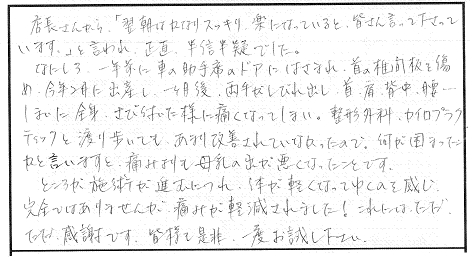 店長さんから、「翌朝はかなりスッキリ、楽になっていると、皆さん言って下さって
います。」と言われ、正直、半信半疑でした。
なにしろ、一年前に車の助手席のドアにはさまれ、首の椎間板を傷
め、今年2月に出産し、一ヶ月後、両手がしびれ出し、首、肩、背中、腰…
しまいに全身、さび付いた様に痛くなってしまい。整形外科、カイロプラク
ティックと渡り歩いても、あまり改善されていなかったので、何が困ったこ
かと言いますと、痛みよりも母乳の出が悪くなったことです。
ところが施術が進むにつれ、体が軽くなってゆくのを感じ、
完全ではありませんが、痛みが軽減されました!これには、ただ、
ただ、感謝です。皆様も是非、一度お試し下さい。